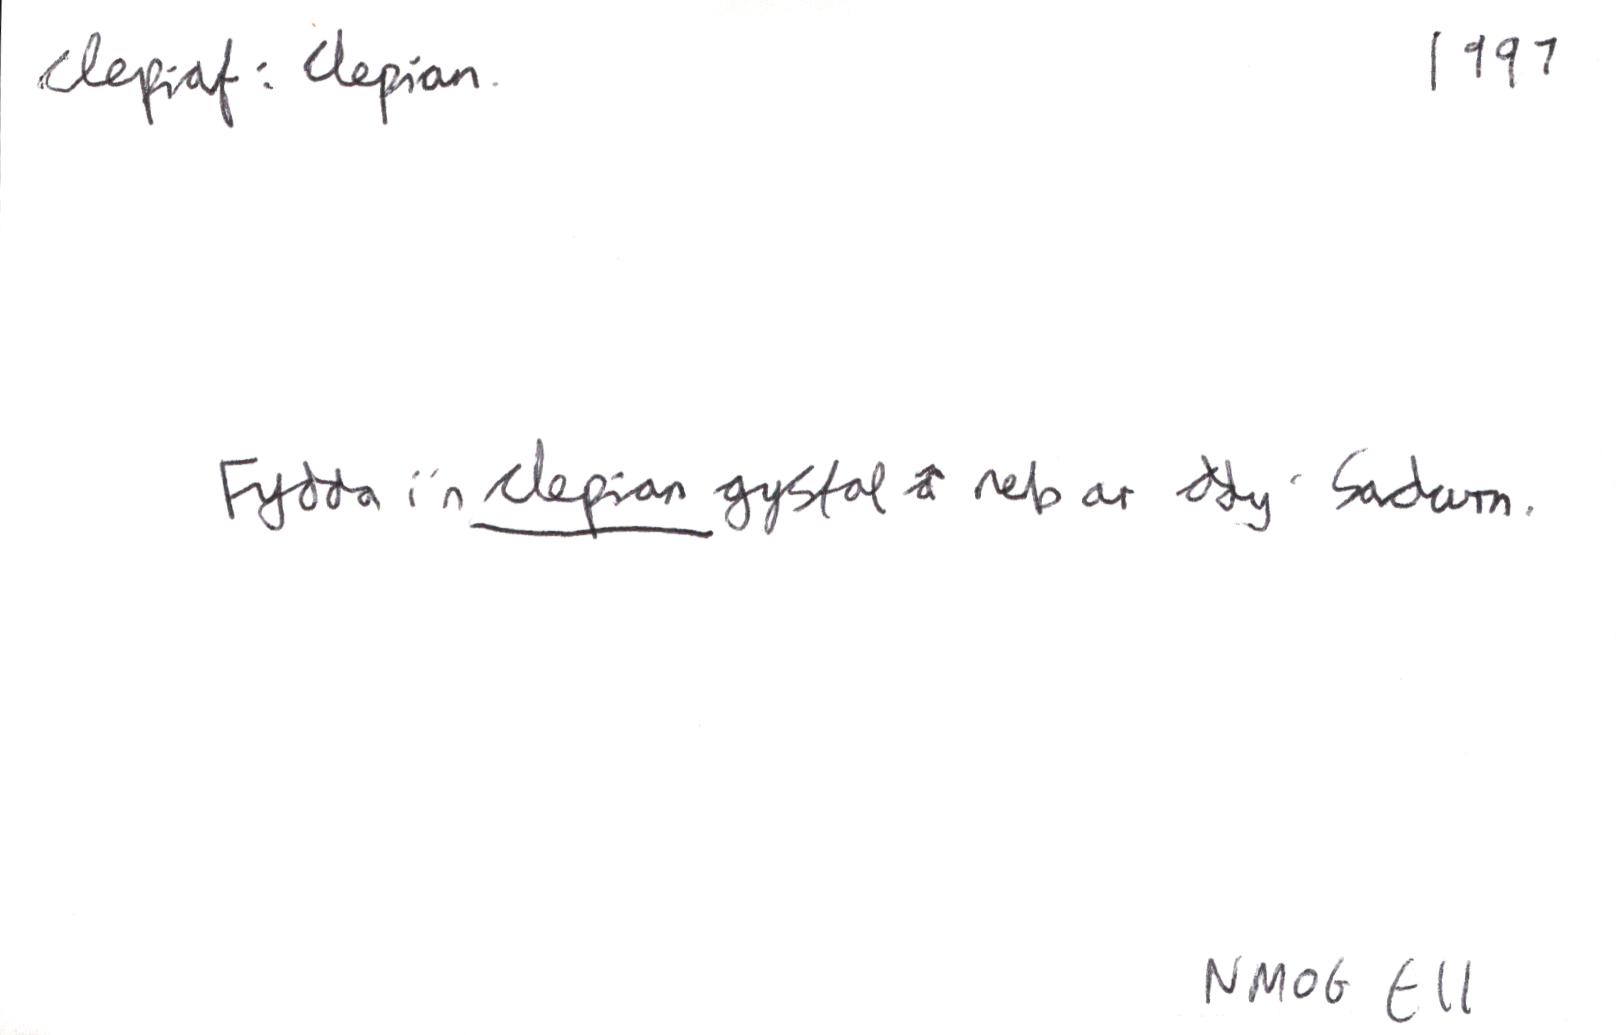 clepiaf: clepian. 1997
Fydda i'n clepian gystal â neb ar ddy' Sadwrn.
NMOG E11